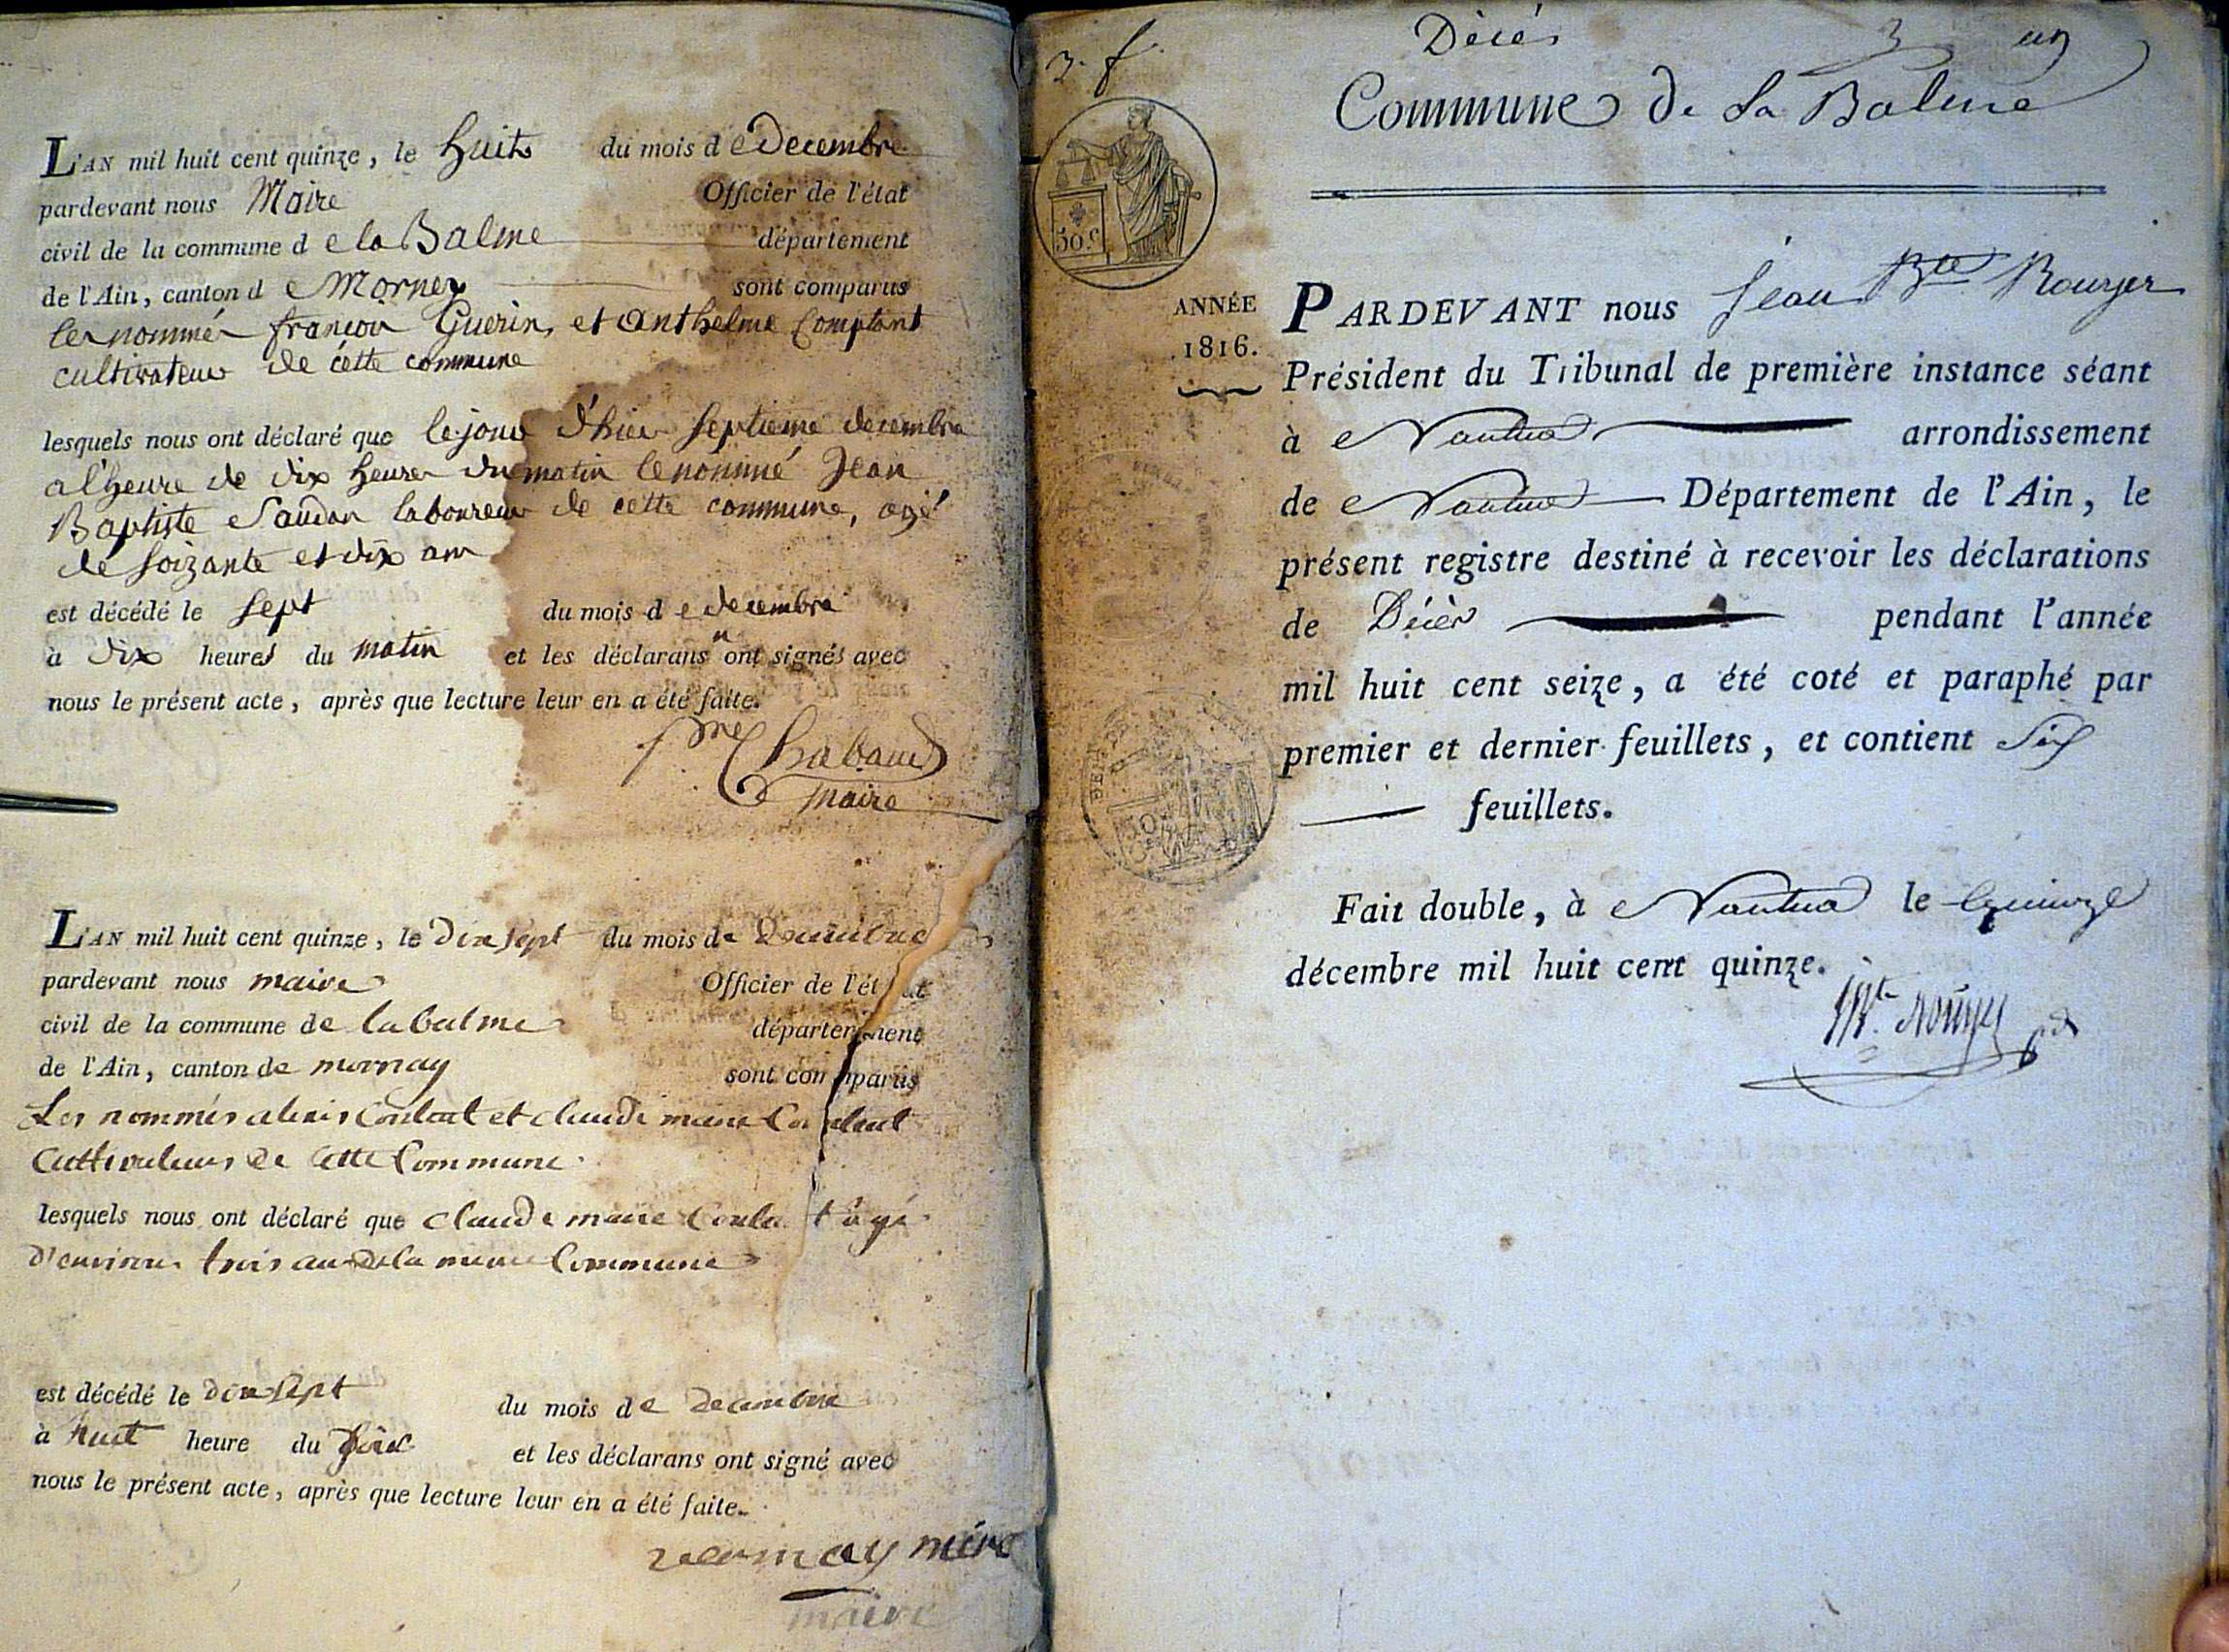 L'AN mil huit cent quinze, le huit du mois de Decembre
pardevant nous Maire Officier de l'état
civil de la commune de la Balme département
de l'Ain, canton de Mornex sont comparus
les nommés françois Guerin, et anthelme Comptant
cultivateur de cette commune
lesquels nous ont déclaré que le jour d'hier septieme decembre
a l'heure de dix heures du matin le nommé Jean
Baptiste Saudan laboureur de cette commune, agé
de soizante et dix ans
est décédé le sept du mois de decembre
à dix heures du matin et les déclarans n'ont signés avec
nous le présent acte, après que lecture leur en a été faite.
Chabaud
maire
L'AN mil huit cent quinze, le dix sept du mois de Decembre
pardevant nous maire Officier de l'état
civil de la commune de labalme département
de l'Ain, canton de mornay sont comparus
Les nommés alexis Coulat et claude marie Coulat
Cultivateurs de Cette Commune
lesquels nous ont déclaré que claude marie Coulat âgé
d'environ trois ans de la meme Commune
est décédé le dix sept du mois de decembre
à huit heure du soir et les déclarans ont signé avec
nous le présent acte, après que lecture leur en a été faite.
maire
3. f.
Décés
Commune de La Balme
50 c
ANNÉE
1816.
PARDEVANT nous Jean Bte Rouyer
Président du Tribunal de première instance séant
à Nantua arrondissement
de Nantua Département de l'Ain, le
présent registre destiné à recevoir les déclarations
de Décès pendant l'année
mil huit cent seize, a été coté et paraphé par
premier et dernier feuillets, et contient Six
feuillets.
Fait double, à Nantua le quinze
décembre mil huit cent quinze.